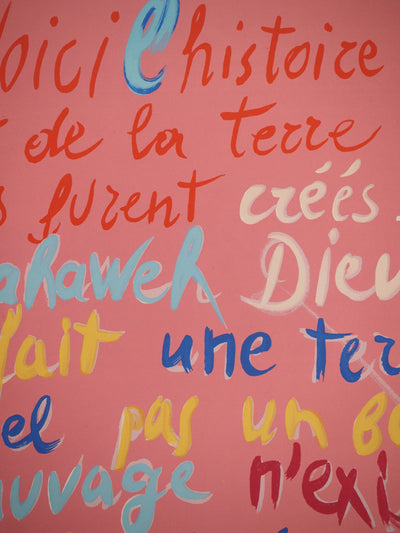 oici l'histoire
de la terre
furent créés.
ahaweh Dieu
fait une ter
el pas un bo
auvage n'exi